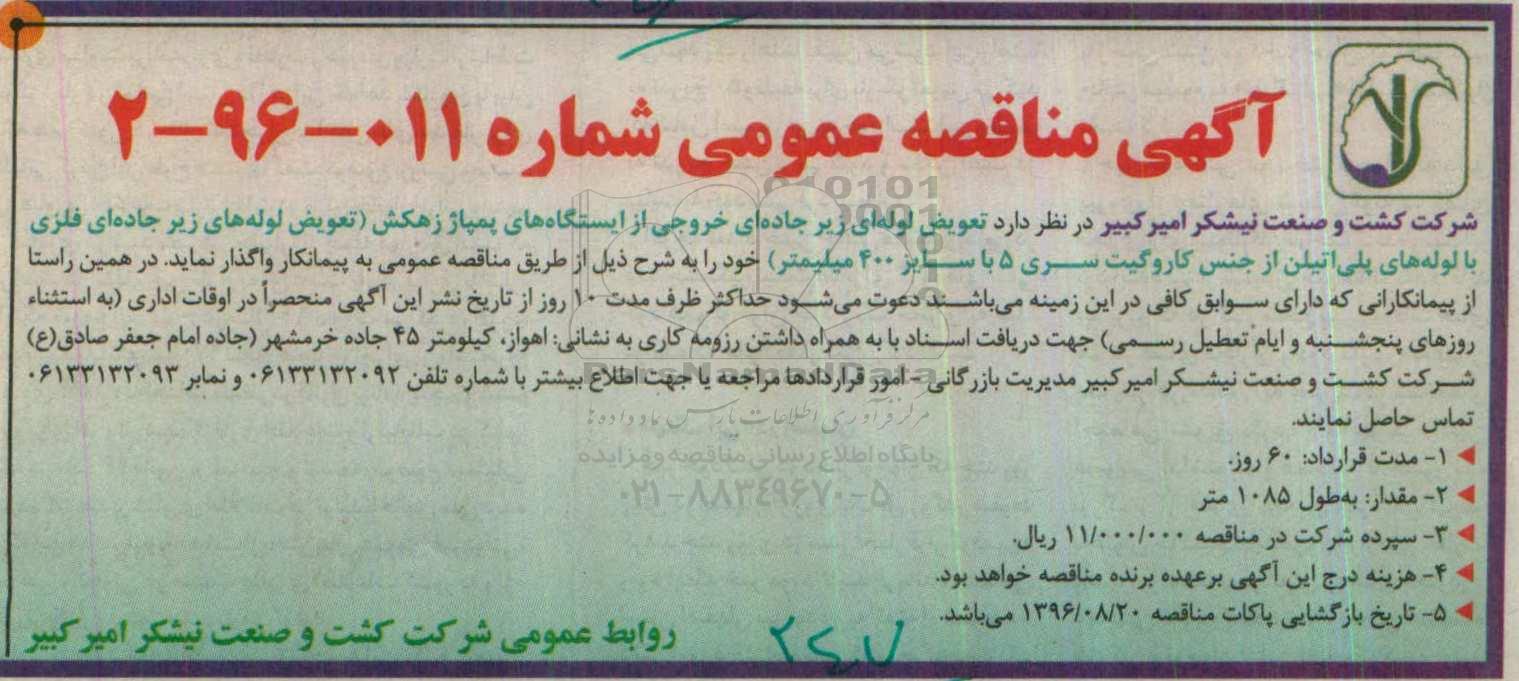 آگهی مناقصه عمومی شماره ۰۱۱-۹۶-۲
شرکت کشت و صنعت نیشکر امیرکبیر در نظر دارد تعویض لوله‌ای زیر جاده‌ای خروجی از ایستگاه‌های پمپاژ زهکش (تعویض لوله‌های زیر جاده‌ای فلزی
با لوله‌های پلی‌اتیلن از جنس کاروگیت سری ۵ با سایز ۴۰۰ میلیمتر) خود را به شرح ذیل از طریق مناقصه عمومی به پیمانکار واگذار نماید. در همین راستا
از پیمانکارانی که دارای سوابق کافی در این زمینه می‌باشند دعوت می‌شود حداکثر ظرف مدت ۱۰ روز از تاریخ نشر این آگهی منحصراً در اوقات اداری (به استثناء
روزهای پنجشنبه و ایام تعطیل رسمی) جهت دریافت اسناد با به همراه داشتن رزومه کاری به نشانی: اهواز، کیلومتر ۴۵ جاده خرمشهر (جاده امام جعفر صادق(ع)
شرکت کشت و صنعت نیشکر امیرکبیر مدیریت بازرگانی - امور قراردادها مراجعه یا جهت اطلاع بیشتر با شماره تلفن ۰۶۱۳۳۱۳۲۰۹۲ و نمابر ۰۶۱۳۳۱۳۲۰۹۳
تماس حاصل نمایند.
۱- مدت قرارداد: ۶۰ روز.
۲- مقدار: به‌طول ۱۰۸۵ متر
۳- سپرده شرکت در مناقصه ۱۱/۰۰۰/۰۰۰ ریال.
۴- هزینه درج این آگهی برعهده برنده مناقصه خواهد بود.
۵- تاریخ بازگشایی پاکات مناقصه ۱۳۹۶/۰۸/۲۰ می‌باشد.
روابط عمومی شرکت کشت و صنعت نیشکر امیرکبیر
ParsNamadData
مرکز فرآوری اطلاعات پارس نماد داده‌ها
پایگاه اطلاع رسانی مناقصه و مزایده
۰۲۱-۸۸۳۴۹۶۷۰-۵